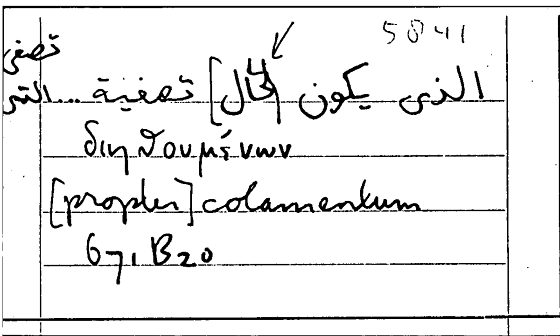 5841
تصفى
الذى يكون [لحال] تصفية ... التى
διηθουμένων
[propter] colamentum
671, B20